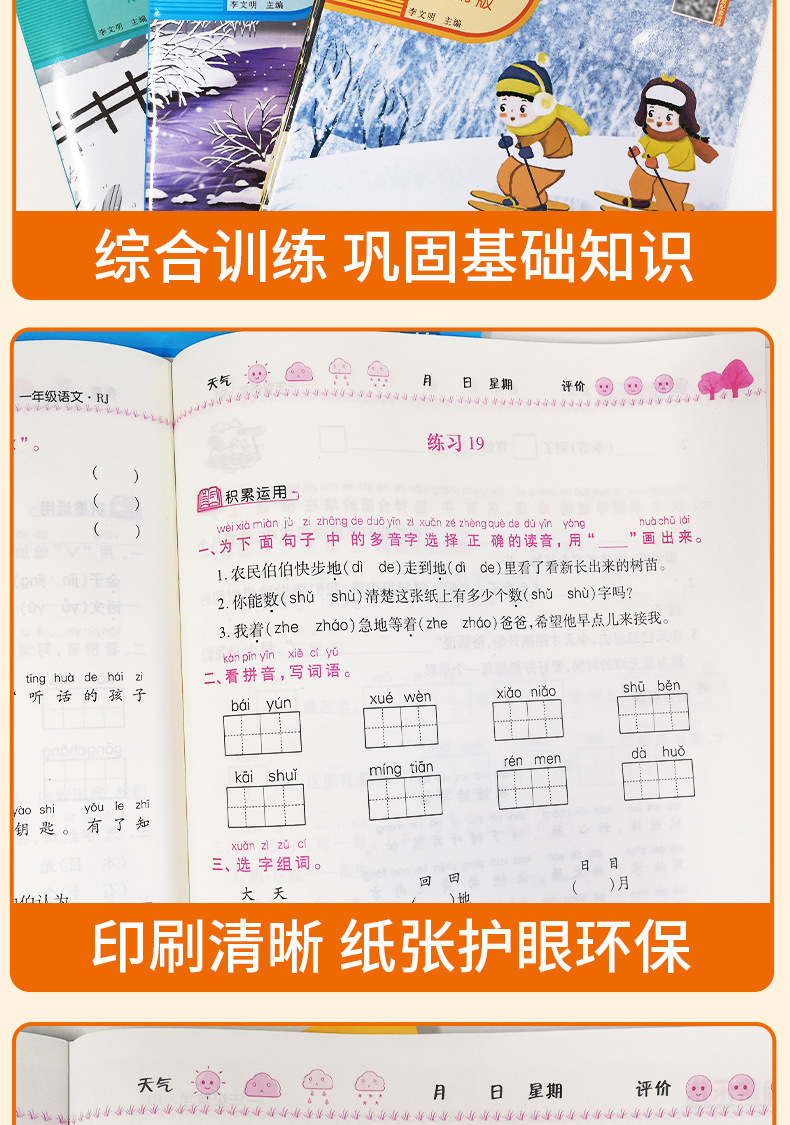 版
李文明 主编
李文明 主编
李文明 主编
综合训练 巩固基础知识
一年级语文·RJ
”。
( )
( )
( )
tīng huà de hái zi
听 话 的 孩 子
yào shi yǒu le zhī
钥 匙 。 有 了 知
天气 月 日 星期 评价
练习 19
积累运用
wèi xià miàn jù zi zhōng de duō yīn zì xuǎn zé zhèng què de dú yīn yòng huà chū lái
一、为 下 面 句 子 中 的 多音字 选 择 正 确 的读音，用“____”画 出 来。
1. 农民伯伯快步地(dì de)走到地(dì de)里看了看新长出来的树苗。
2. 你能数(shǔ shù)清楚这张纸上有多少个数(shǔ shù)字吗?
3. 我着(zhe zháo)急地等着(zhe zháo)爸爸,希望他早点儿来接我。
kàn pīn yīn xiě cí yǔ
二、看 拼 音，写 词 语。
bái yún xué wèn xiǎo niǎo shū běn
kāi shuǐ míng tiān rén men dà huǒ
xuǎn zì zǔ cí
三、选 字 组 词。
大 天 回 田 日 目
( )地 ( )月
印刷清晰 纸张护眼环保
天气 月 日 星期 评价